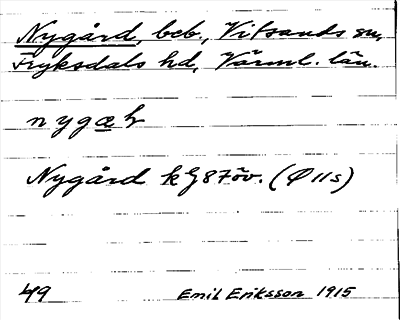 Nygård, beb., Vitsands sn,
Fryksdals hd, Värml. län.
nygæɫ
Nygård kG87öv. (Ø11s)
49
Emil Eriksson 1915